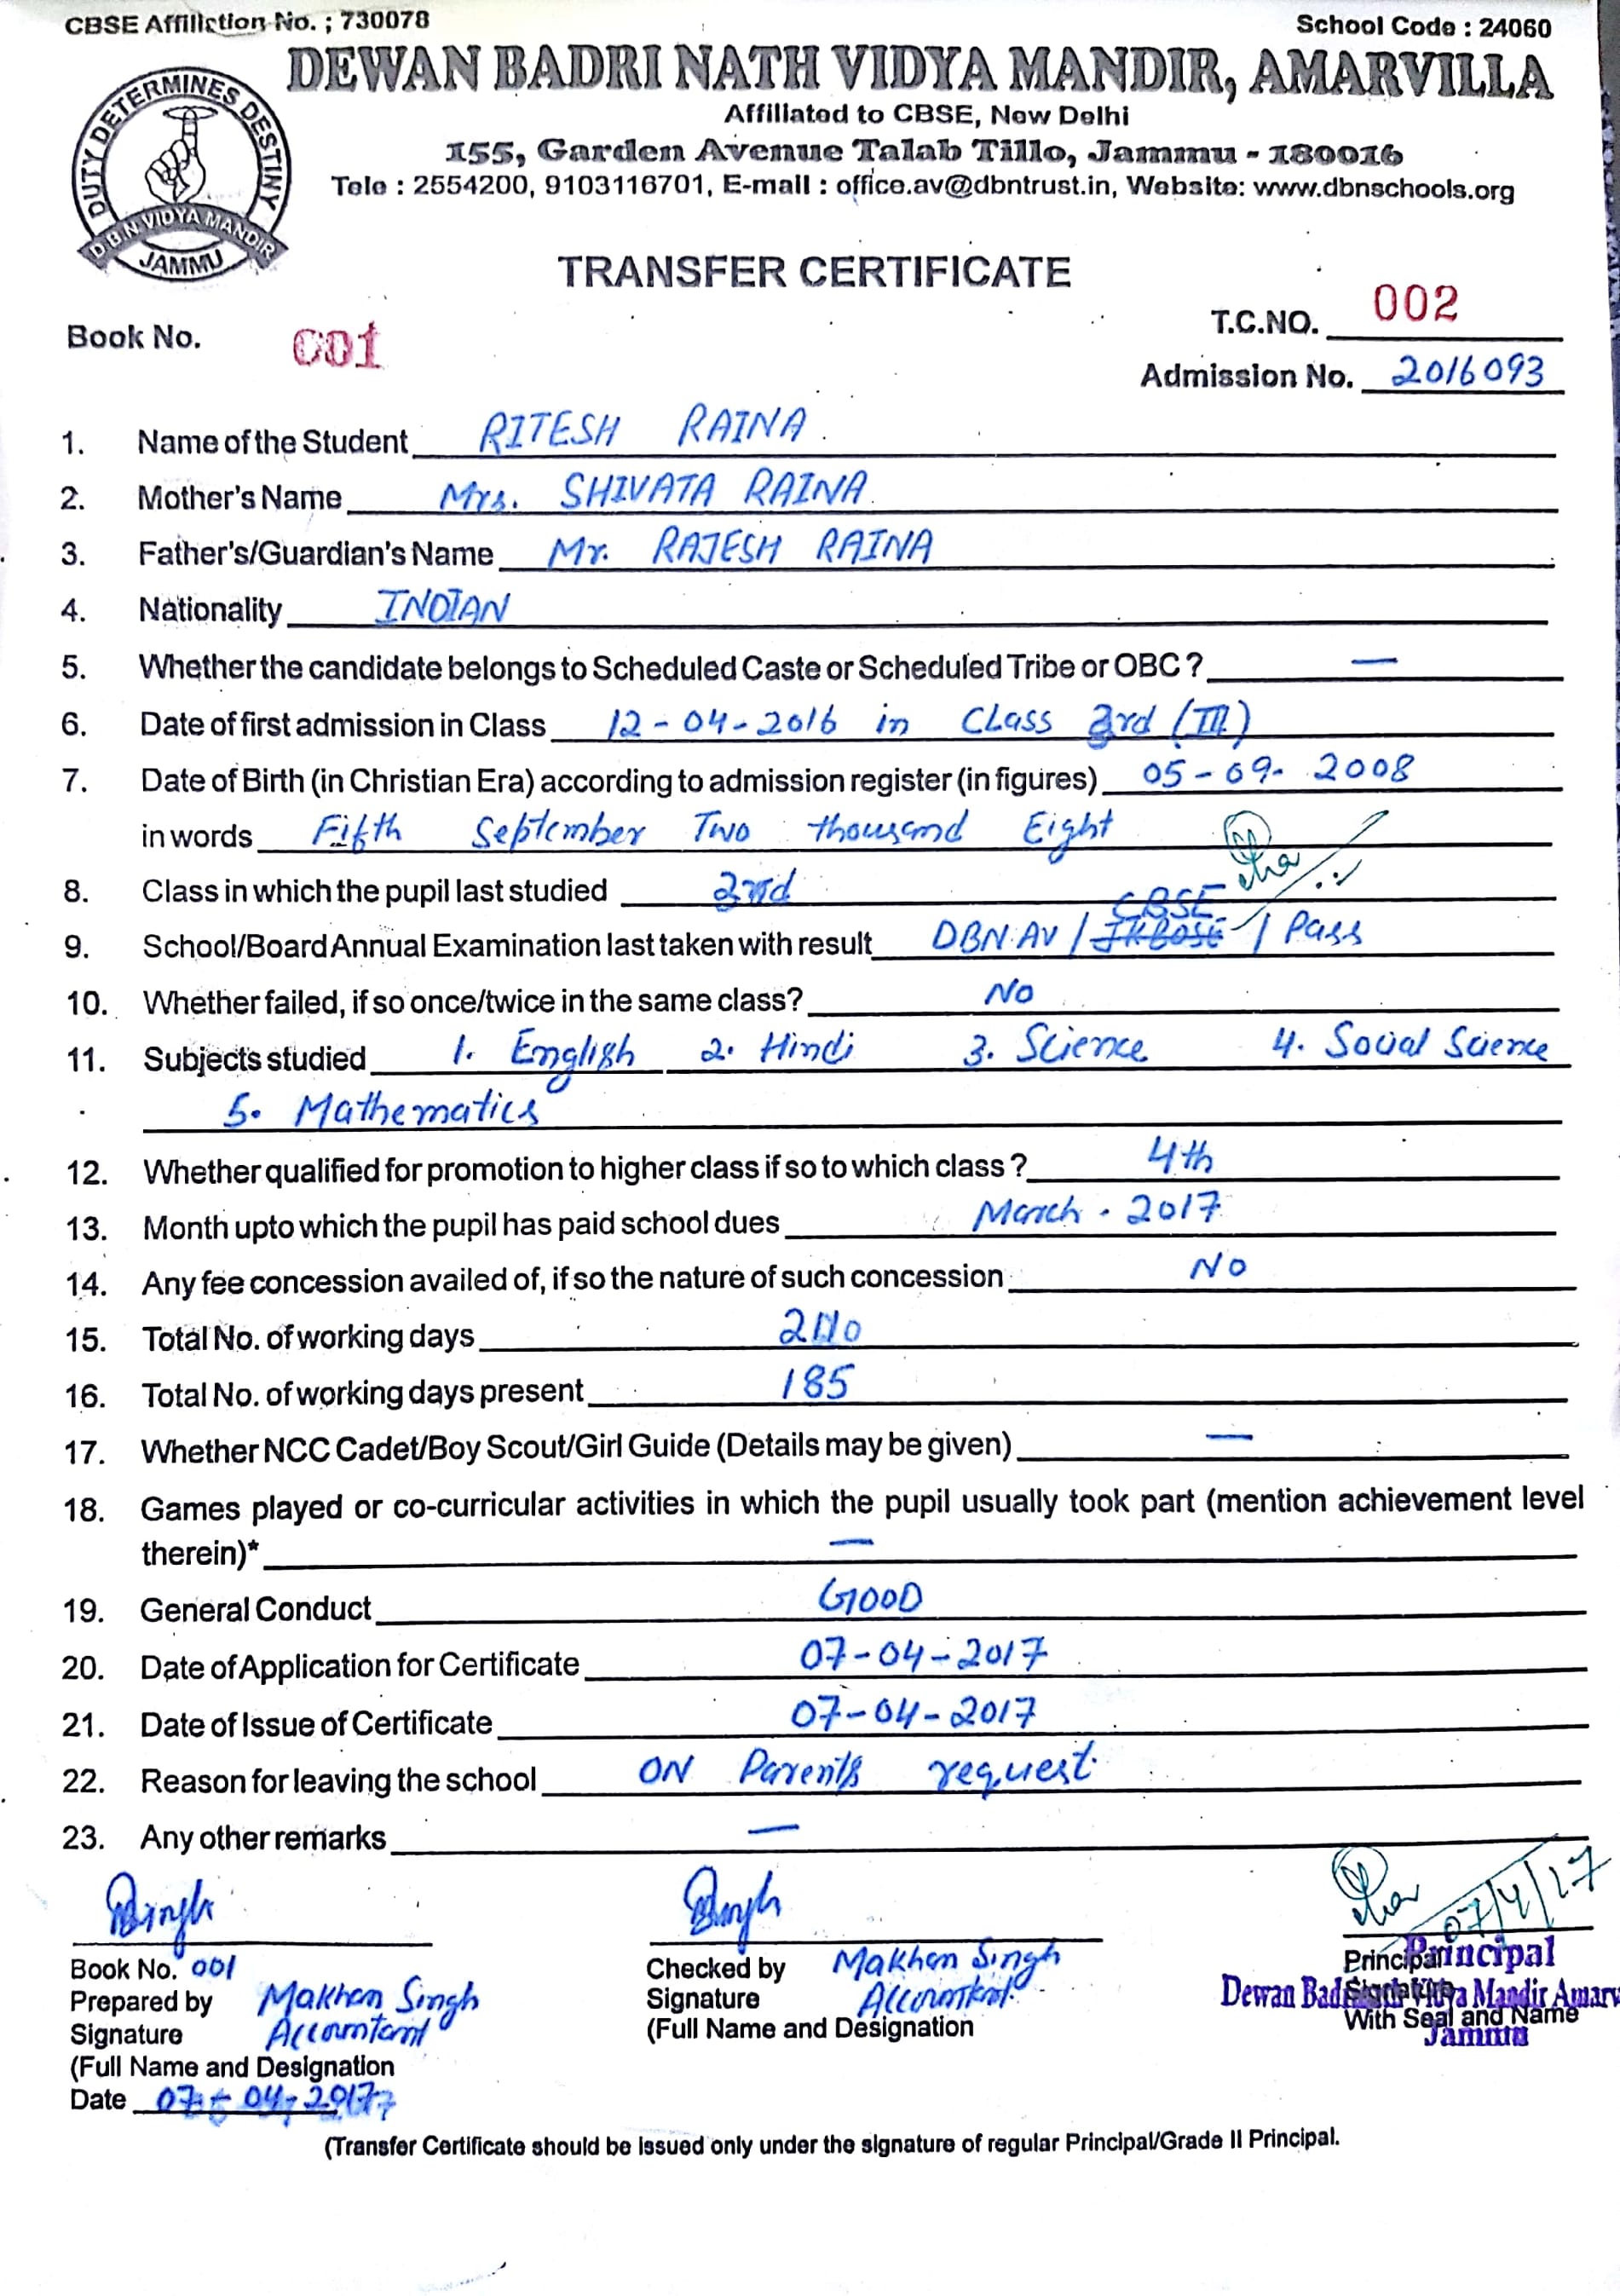 CBSE Affiliction No. ; 730078
School Code : 24060
DEWAN BADRI NATH VIDYA MANDIR, AMARVILLA
Affiliated to CBSE, New Delhi
155, Garden Avenue Talab Tillo, Jammu - 180016
Tele : 2554200, 9103116701, E-mail : office.av@dbntrust.in, Website: www.dbnschools.org
DUTY DETERMINES DESTINY
D.B.N. VIDYA MANDIR
JAMMU
TRANSFER CERTIFICATE
Book No. 001
T.C.NO. 002
Admission No. 2016093
1. Name of the Student RITESH RAINA
2. Mother's Name Mrs. SHIVATA RAINA
3. Father's/Guardian's Name Mr. RAJESH RAINA
4. Nationality INDIAN
5. Whether the candidate belongs to Scheduled Caste or Scheduled Tribe or OBC ? —
6. Date of first admission in Class 12-04-2016 in Class 3rd (III)
7. Date of Birth (in Christian Era) according to admission register (in figures) 05-09-2008
in words Fifth September Two thousand Eight
8. Class in which the pupil last studied 3rd
9. School/Board Annual Examination last taken with result DBN AV / JKBOSE CBSE / Pass
10. Whether failed, if so once/twice in the same class? No
11. Subjects studied 1. English 2. Hindi 3. Science 4. Social Science
5. Mathematics
12. Whether qualified for promotion to higher class if so to which class ? 4th
13. Month upto which the pupil has paid school dues March - 2017
14. Any fee concession availed of, if so the nature of such concession No
15. Total No. of working days
16. Total No. of working days present 185
17. Whether NCC Cadet/Boy Scout/Girl Guide (Details may be given) —
18. Games played or co-curricular activities in which the pupil usually took part (mention achievement level
therein)* —
19. General Conduct GOOD
20. Date of Application for Certificate 07-04-2017
21. Date of Issue of Certificate 07-04-2017
22. Reason for leaving the school ON Parents request
23. Any other remarks —
07/4/17
Book No. 001
Prepared by Makhan Singh
Signature Accountant
(Full Name and Designation
Date 07-04-2017
Checked by Makhan Singh
Signature Accountant
(Full Name and Designation
Principal
Signature
With Seal and Name
Principal
Dewan Badri Nath Vidya Mandir Amarv
Jammu
(Transfer Certificate should be issued only under the signature of regular Principal/Grade II Principal.